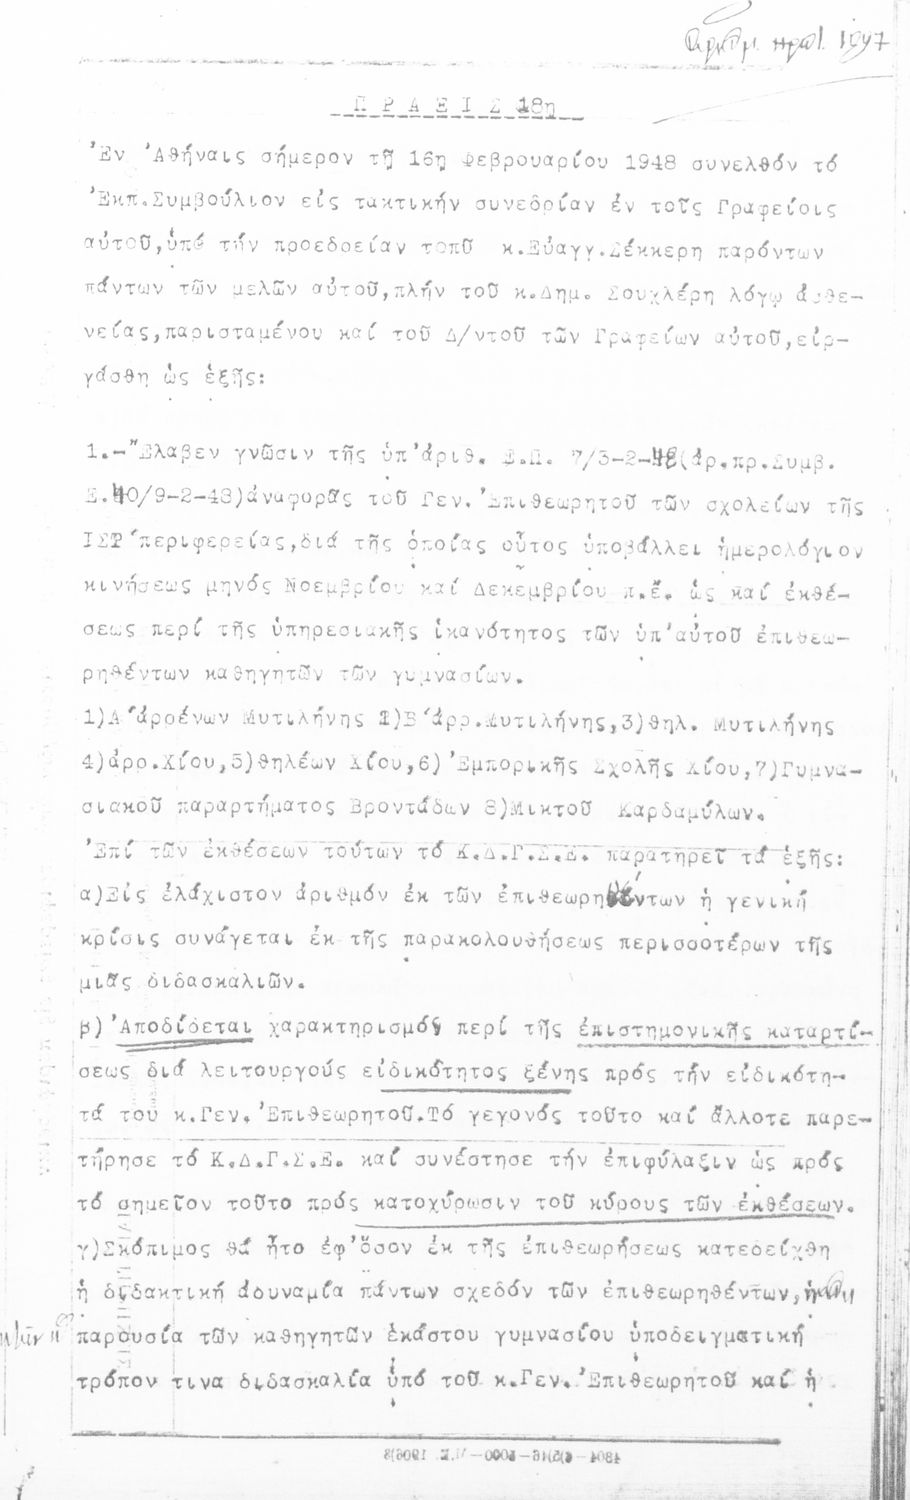 Ἀριθμ. πρωτ. 1947
Π Ρ Α Ξ Ι Σ 18η
Ἐν Ἀθήναις σήμερον τῇ 16ῃ Φεβρουαρίου 1948 συνελθόν τό
Ἐκπ.Συμβούλιον εἰς τακτικήν συνεδρίαν ἐν τοῖς Γραφείοις
αὐτοῦ,ὑπό τήν προεδρείαν τοῦ κ.Εὐαγγ.Δέκκερη παρόντων
πάντων τῶν μελῶν αὐτοῦ,πλήν τοῦ κ.Δημ. Σουχλέρη λόγῳ ἀσθε-
νείας,παρισταμένου καί τοῦ Δ/ντοῦ τῶν Γραφείων αὐτοῦ,εἰρ-
γάσθη ὡς ἑξῆς:
1.-Ἔλαβεν γνῶσιν τῆς ὑπ'ἀριθ. Ε.Π. 7/3-2-48(ἀρ.πρ.Συμβ.
Ε.40/9-2-48)ἀναφορᾶς τοῦ Γεν.Ἐπιθεωρητοῦ τῶν σχολείων τῆς
ΙΣΤ'περιφερείας,διά τῆς ὁποίας οὗτος ὑποβάλλει ἡμερολόγιον
κινήσεως μηνός Νοεμβρίου καί Δεκεμβρίου π.ἔ. ὡς καί ἐκθέ-
σεως περί τῆς ὑπηρεσιακῆς ἱκανότητος τῶν ὑπ'αὐτοῦ ἐπιθεω-
ρηθέντων καθηγητῶν τῶν γυμνασίων.
1)Α'ἀρρένων Μυτιλήνης 2)Β'ἀρρ.Μυτιλήνης,3)θηλ. Μυτιλήνης
4)ἀρρ.Χίου,5)θηλέων Χίου,6)Ἐμπορικῆς Σχολῆς Χίου,7)Γυμνα-
σιακοῦ παραρτήματος Βροντάδων 8)Μικτοῦ Καρδαμύλων.
Ἐπί τῶν ἐκθέσεων τούτων τό Κ.Δ.Γ.Σ.Ε. παρατηρεῖ τά ἑξῆς:
α)Εἰς ἐλάχιστον ἀριθμόν ἐκ τῶν ἐπιθεωρηθέντων ἡ γενική
κρίσις συνάγεται ἐκ τῆς παρακολουθήσεως περισσοτέρων τῆς
μιᾶς διδασκαλιῶν.
β)Ἀποδίδεται χαρακτηρισμός περί τῆς ἐπιστημονικῆς καταρτί-
σεως διά λειτουργούς εἰδικότητος ξένης πρός τήν εἰδικότη-
τά τοῦ κ.Γεν.Ἐπιθεωρητοῦ.Τό γεγονός τοῦτο καί ἄλλοτε παρε-
τήρησε τό Κ.Δ.Γ.Σ.Ε. καί συνέστησε τήν ἐπιφύλαξιν ὡς πρός
τό σημεῖον τοῦτο πρός κατοχύρωσιν τοῦ κύρους τῶν ἐκθέσεων.
γ)Σκόπιμος θά ἦτο ἐφ'ὅσον ἐκ τῆς ἐπιθεωρήσεως κατεδείχθη
ἡ διδακτική ἀδυναμία πάντων σχεδόν τῶν ἐπιθεωρηθέντων,
παρουσίᾳ τῶν καθηγητῶν ἑκάστου γυμνασίου ὑποδειγματική
τρόπον τινα διδασκαλία ὑπό τοῦ κ.Γεν.Ἐπιθεωρητοῦ καί ἡ